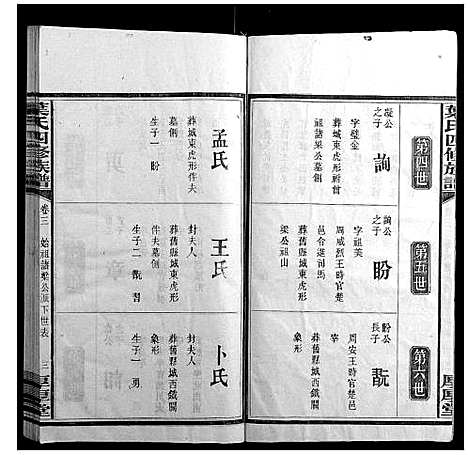 葉氏四修族譜
第四世
凝公之子
詢
字瑩金
葬城東虎形祔首
祖諸梁公墓側
孟氏
葬城東虎形祔夫
墓側
生子一 盼
第五世
詢公之子
盼
字祖美
周威烈王時官楚
邑令進司馬
葬舊縣城東虎形
梁公祖山
王氏
封夫人
葬舊縣城東虎形
祔夫墓側
生子二 翫 習
第六世
盼公長子
翫
周安王時官楚邑
宰
葬舊縣城西鐵關
象形
卜氏
封夫人
葬舊縣城西鐵關
象形
生子一 勇
葉氏四修族譜
卷三
始祖諸梁公派下世表
三